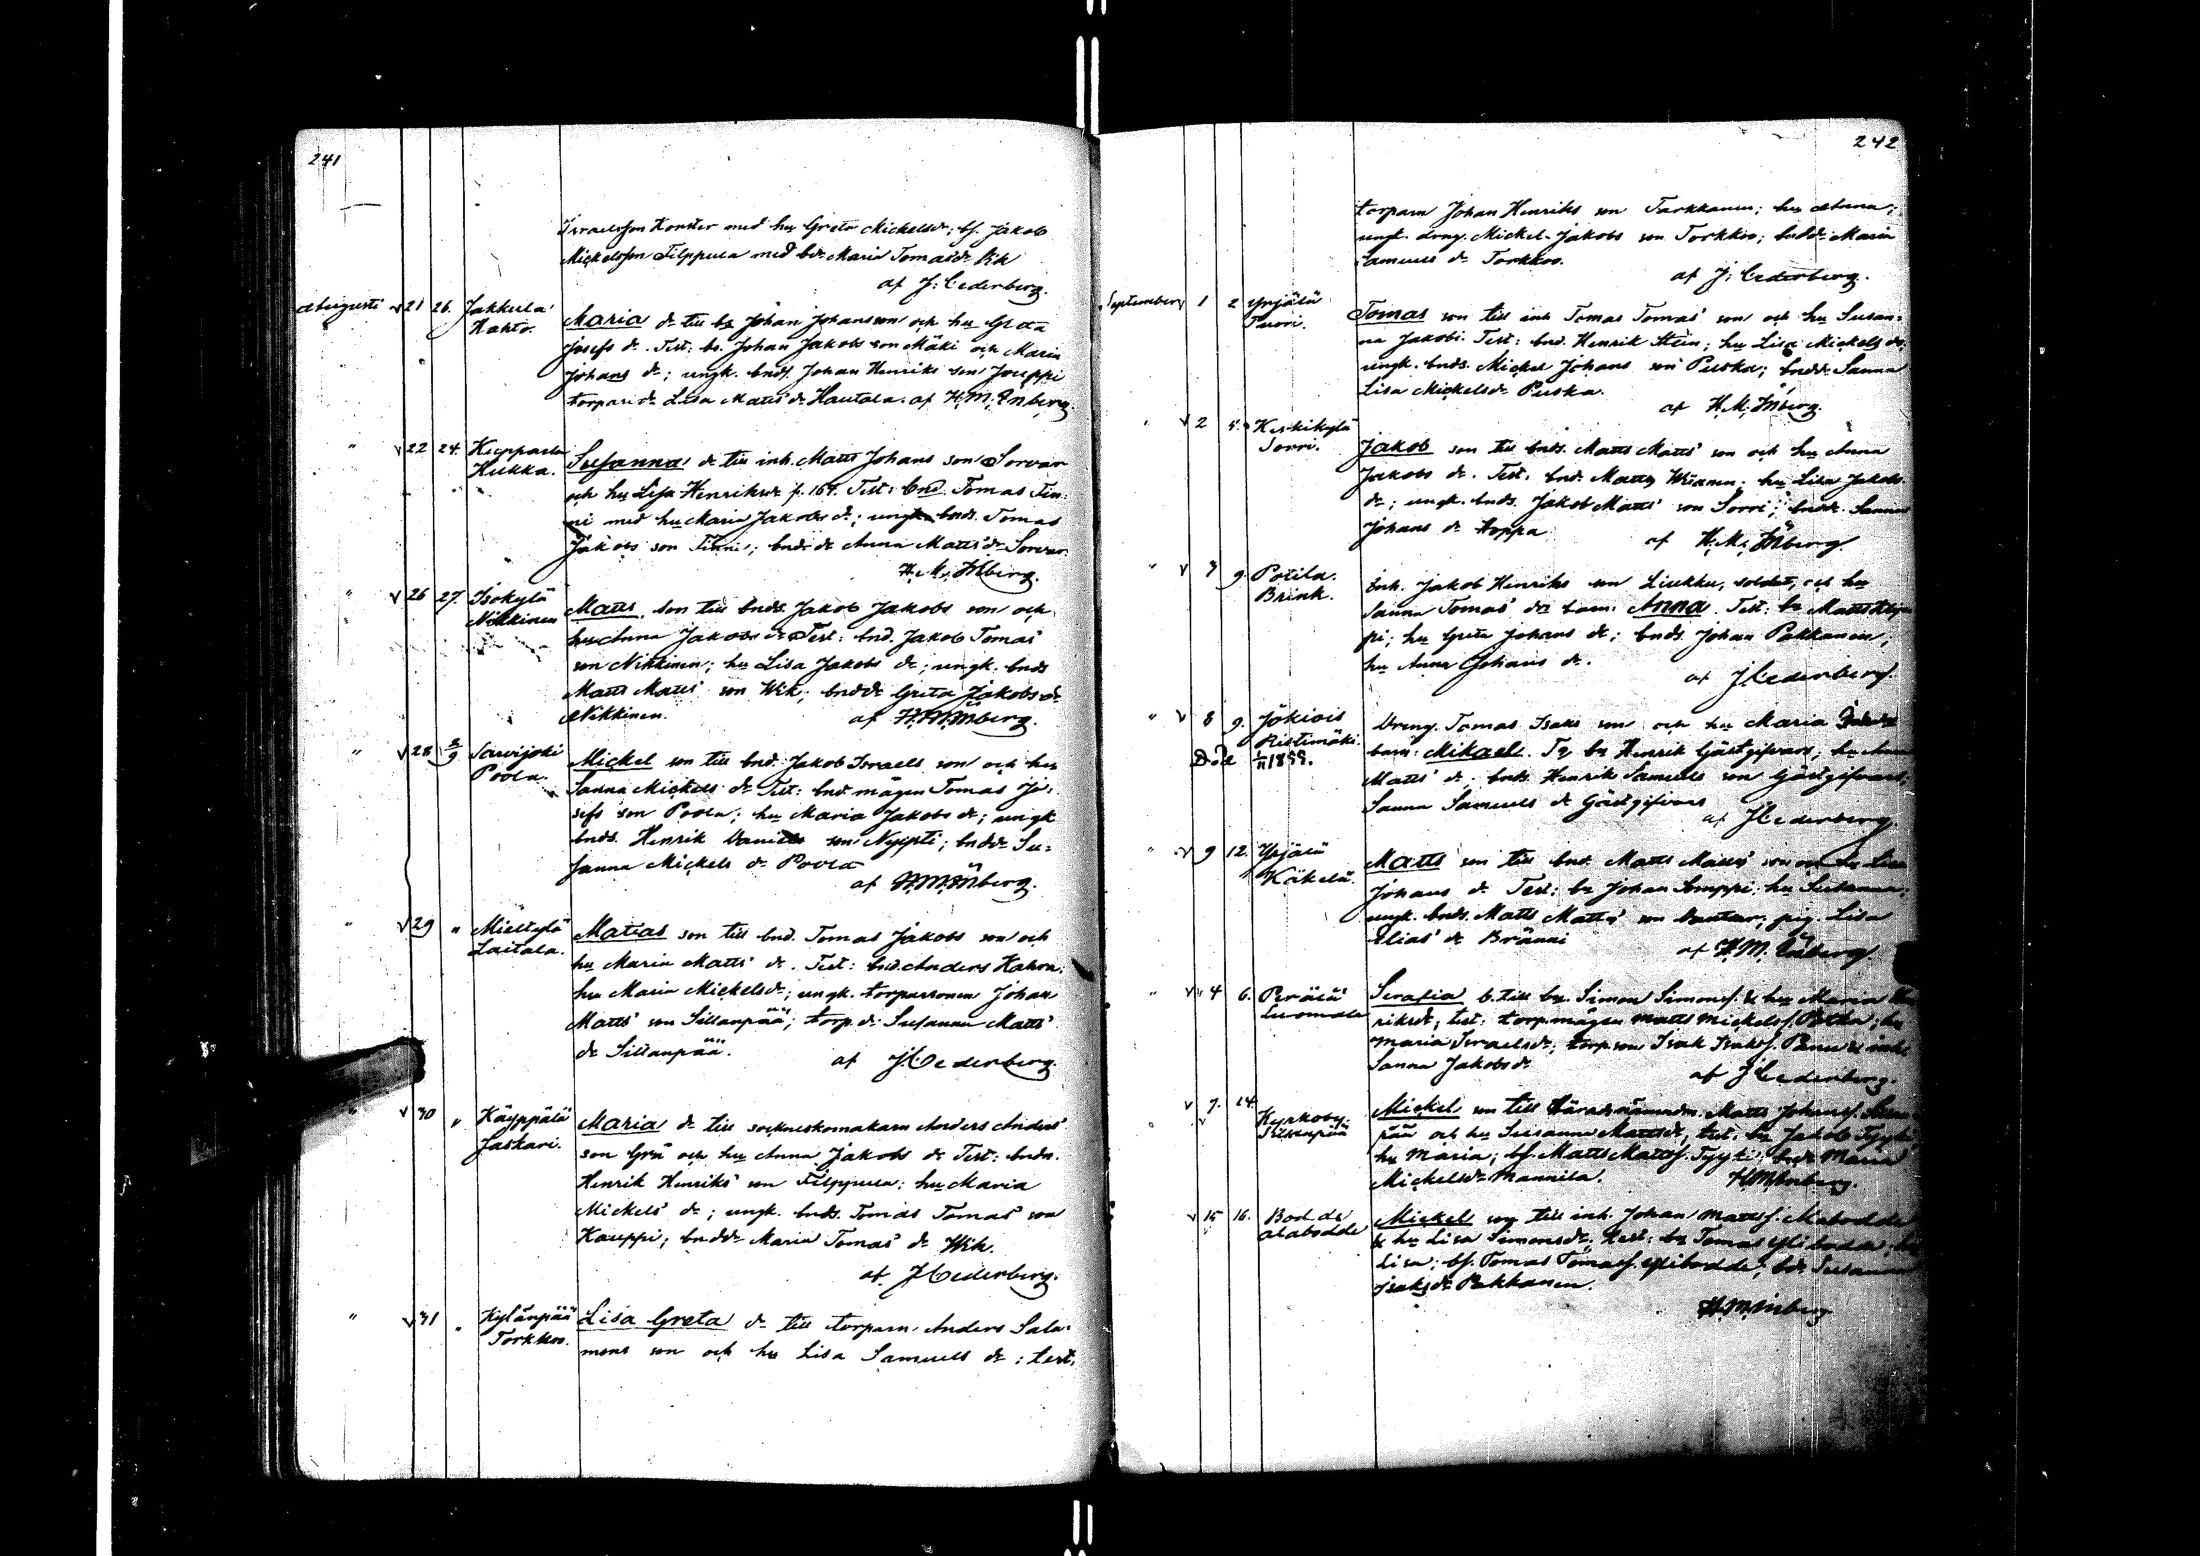 241
Israelsson Konster med hu Greta Mickelsdr; bs. Jakob
Mickelsson Filppula med bdr Maria Tomasdr Pih
af J: Cederberg.
Augusti v 21 26. Jakkula Kahto. Maria dr till bd Johan Johans son och hu Greta
Josefs dr. Test: bd. Johan Jakobs son Mäki och Maria
Johans dr; ungk. bnds. Johan Henriks son Jouppi
torparedr Lisa Matts dr Hautala. af H.M. Inberg
" v 22 24. Kuppala Kukka. Susanna dr till inh. Matts Johans son Sorvar
och hu Lisa Henriksdr p. 164. Test: bnd. Tomas Fin-
ni med hu Maria Jakobs dr; ungk. bnds. Tomas
Jakobs son Finni; bnds dr Anna Matts dr Sorvar
H. M. Inberg.
" v 26 27. Isokylä Nikkinen Matts son till bnds. Jakob Jakobs son och
hu Anna Jakobs dr Test: bnd. Jakob Tomas
son Nikkinen; hu Lisa Jakobs dr; ungk. bnds
Matts Matts son Wik; bnddr Greta Jakobs dr
Nikkinen. af H.M. Inberg.
" v 28 2/9 Sarvijoki Poola. Mickel son till bnd. Jakob Israels son och hu
Sanna Mickels dr Test: bnd mågen Tomas Jo-
sefs son Poola; hu Maria Jakobs dr; ungk
bnds. Henrik Daniels son Nyysti; bnddr Su-
sanna Mickels dr Poola
af H.M. Inberg.
" v 29 " Mieltylä Laitala. Matias son till bnd. Tomas Jakobs son och
hu Maria Matts dr. Test: bnd. Anders Kahra;
hu Maria Mickelsdr; ungk. torparsonen Johan
Matts son Sillanpää; torp. dr Susanna Matts
dr Sillanpää. af J. Cederberg.
" v 30 " Käyppälä Jaskari. Maria dr till sockneskomakarn Anders Anders
son Grå och hu Anna Jakobs dr Test: bnds.
Henrik Henriks son Filppula; hu Maria
Mickels dr; ungk. bnds. Tomas Tomas son
Kauppi; bnddr Maria Tomas dr Wik.
af J Cederberg.
" v 31 " Kylänpää Torkkos. Lisa Greta dr till torparn Anders Salo-
mons son och hu Lisa Samuels dr; test;
242
torparn Johan Henriks son Tarkkanen; hu Anna;
ungk. dräng. Mickel Jakobs son Torkkos; bnddr Maria
Samuels dr Torkkos.
af J: Cederberg.
September 1 2 Yrjälä Tuori. Tomas son till inh Tomas Tomas son och hu Susan-
na Jakobs. Test: bnd. Henrik Stein; hu Lisa Mickels dr;
ungk. bnds. Mickel Johans son Puska; bnddr Sanna
Lisa Mickelsdr Puska.
af H.M. Inberg.
v 2 5. Keskikylä Sorri. Jakob son till bnds. Matts Matts son och hu Anna
Jakobs dr. Test: bnd. Matts; hu Lisa Jakobs
dr; ungk. bnds. Jakob Matts son Sorri; bnddr. Sanna
Johans dr Hoppa af H.M. Inberg
" v 3 9. Potila. Brink. Inh. Jakob Henriks son Liukku, soldat, och hu
Sanna Tomas dr barn: Anna. Test: bd Matts
; hu Greta Johans dr; bnds. Johan Pakkanen;
hu Anna Johans dr.
af J Cederberg.
" v 8 9. Jokiois Ristimäki. Dreng. Tomas Isaks son och hu Maria
Död 1/11 1859. barn: Mikael. Tz bd Henrik Gästgifvars; hu Anna
Matts dr; bnds. Henrik Samuels son Gästgifvars;
Sanna Samuels dr Gästgifvars
af J Cederberg
" v 9 12. Yrjälä Käkelä. Matts son till bnd. Matts Matts son och hu Lisa
Johans dr Test: bd Johan Somppi hu Susanna;
ungk. bnds. Matts Matts son; pig. Lisa
Elias dr Bränni
af H.M. Inberg
" v 4 6. Perälä Luomala Serafia b. till bd. Simon Simonss. & hu Maria Hen
riksdr; test: torpmågen Matts Mickelss. Potka; hu
Maria Israelsdr; torp. son Isak Isakss. & inh
Sanna Jakobsdr
af J Cederberg.
v 7. 14 Kyrkoby Sillanpää Mickel son till Häradsnämndm. Matts Johanss. Sillan
pää och hu Susanna Mattsdr; test: bd Jakob Tyyki;
hu Maria; bs. Matts Mattss. Tyyki; bndr Maria
Mickelsdr Mannila. H.M. Inberg.
v 15 16. Bodde Alabodde Mickel son till inh. Johan Mattss. Alabodde
& hu Lisa Simonsdr; test; bd Tomas Ylibodde; hu
Lisa; bs. Tomas Tomass. Ylibodde; bdr Susanna
Isaksdr Pakkanen.
H.M. Inberg